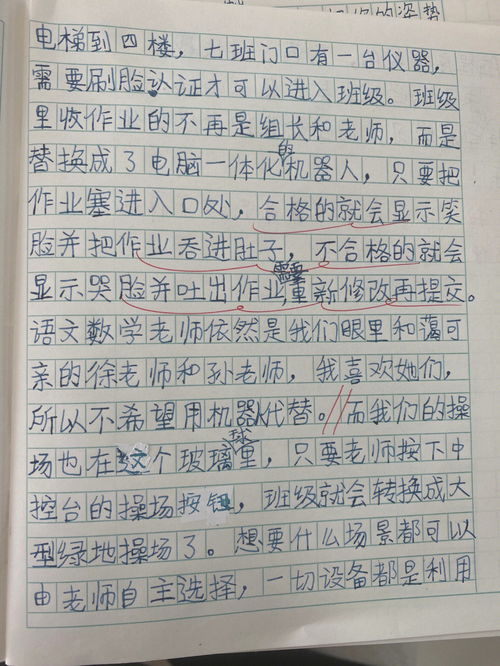 电梯到四楼，七班门口有一台仪器，
需要刷脸认证才可以进入班级。班级
里收作业的不再是组长和老师，而是
替换成了电脑一体化的机器人，只要把
作业塞进入口处，合格的就会显示笑
脸并把作业吞进肚子，不合格的就会
显示哭脸并吐出作业，需要重新修改再提交。
语文数学老师依然是我们眼里和蔼可
亲的徐老师和孙老师，我喜欢她们，
所以不希望用机器代替。//而我们的操
场也在这个玻璃球里，只要老师按下中
控台的操场按钮，班级就会转换成大
型绿地操场了。想要什么场景都可以
由老师自主选择，一切设备都是利用